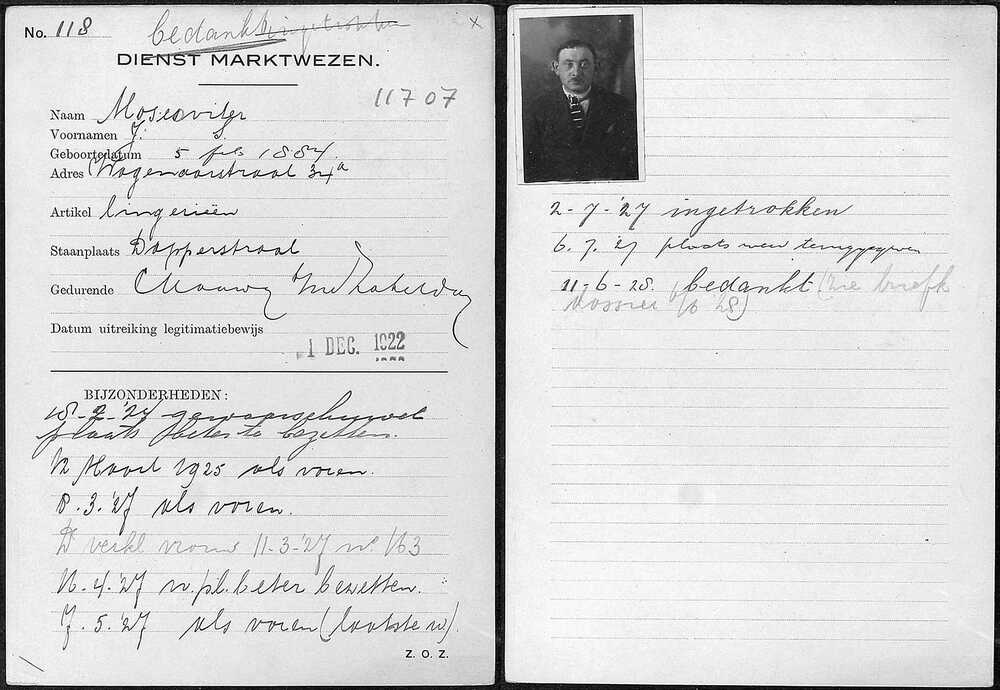 No. 118
bedankt ingetrokken
x
DIENST MARKTWEZEN.
11707
Naam Moscoviter
Voornamen J. S.
Geboortedatum 5 feb 1884.
Adres Wagenaarstraat 34a
Artikel lingerieën
Staanplaats Dapperstraat
Gedurende Maandag t/m Zaterdag
Datum uitreiking legitimatiebewijs
1 DEC. 1922
BIJZONDERHEDEN:
18-2-'24 gewaarschuwd
plaats beter te bezetten.
12 Maart 1925 als voren.
8.3.'27 als voren.
D verkl vrouw 11-3-'27 no 163
16.4.'27 w. pl. beter bezetten.
7.5.'27 als voren (laatste w).
Z. O. Z.
2-7-'27 ingetrokken
6.7.'27 plaats weer teruggegeven
11-6-28. bedankt (zie briefk
dossier 28)